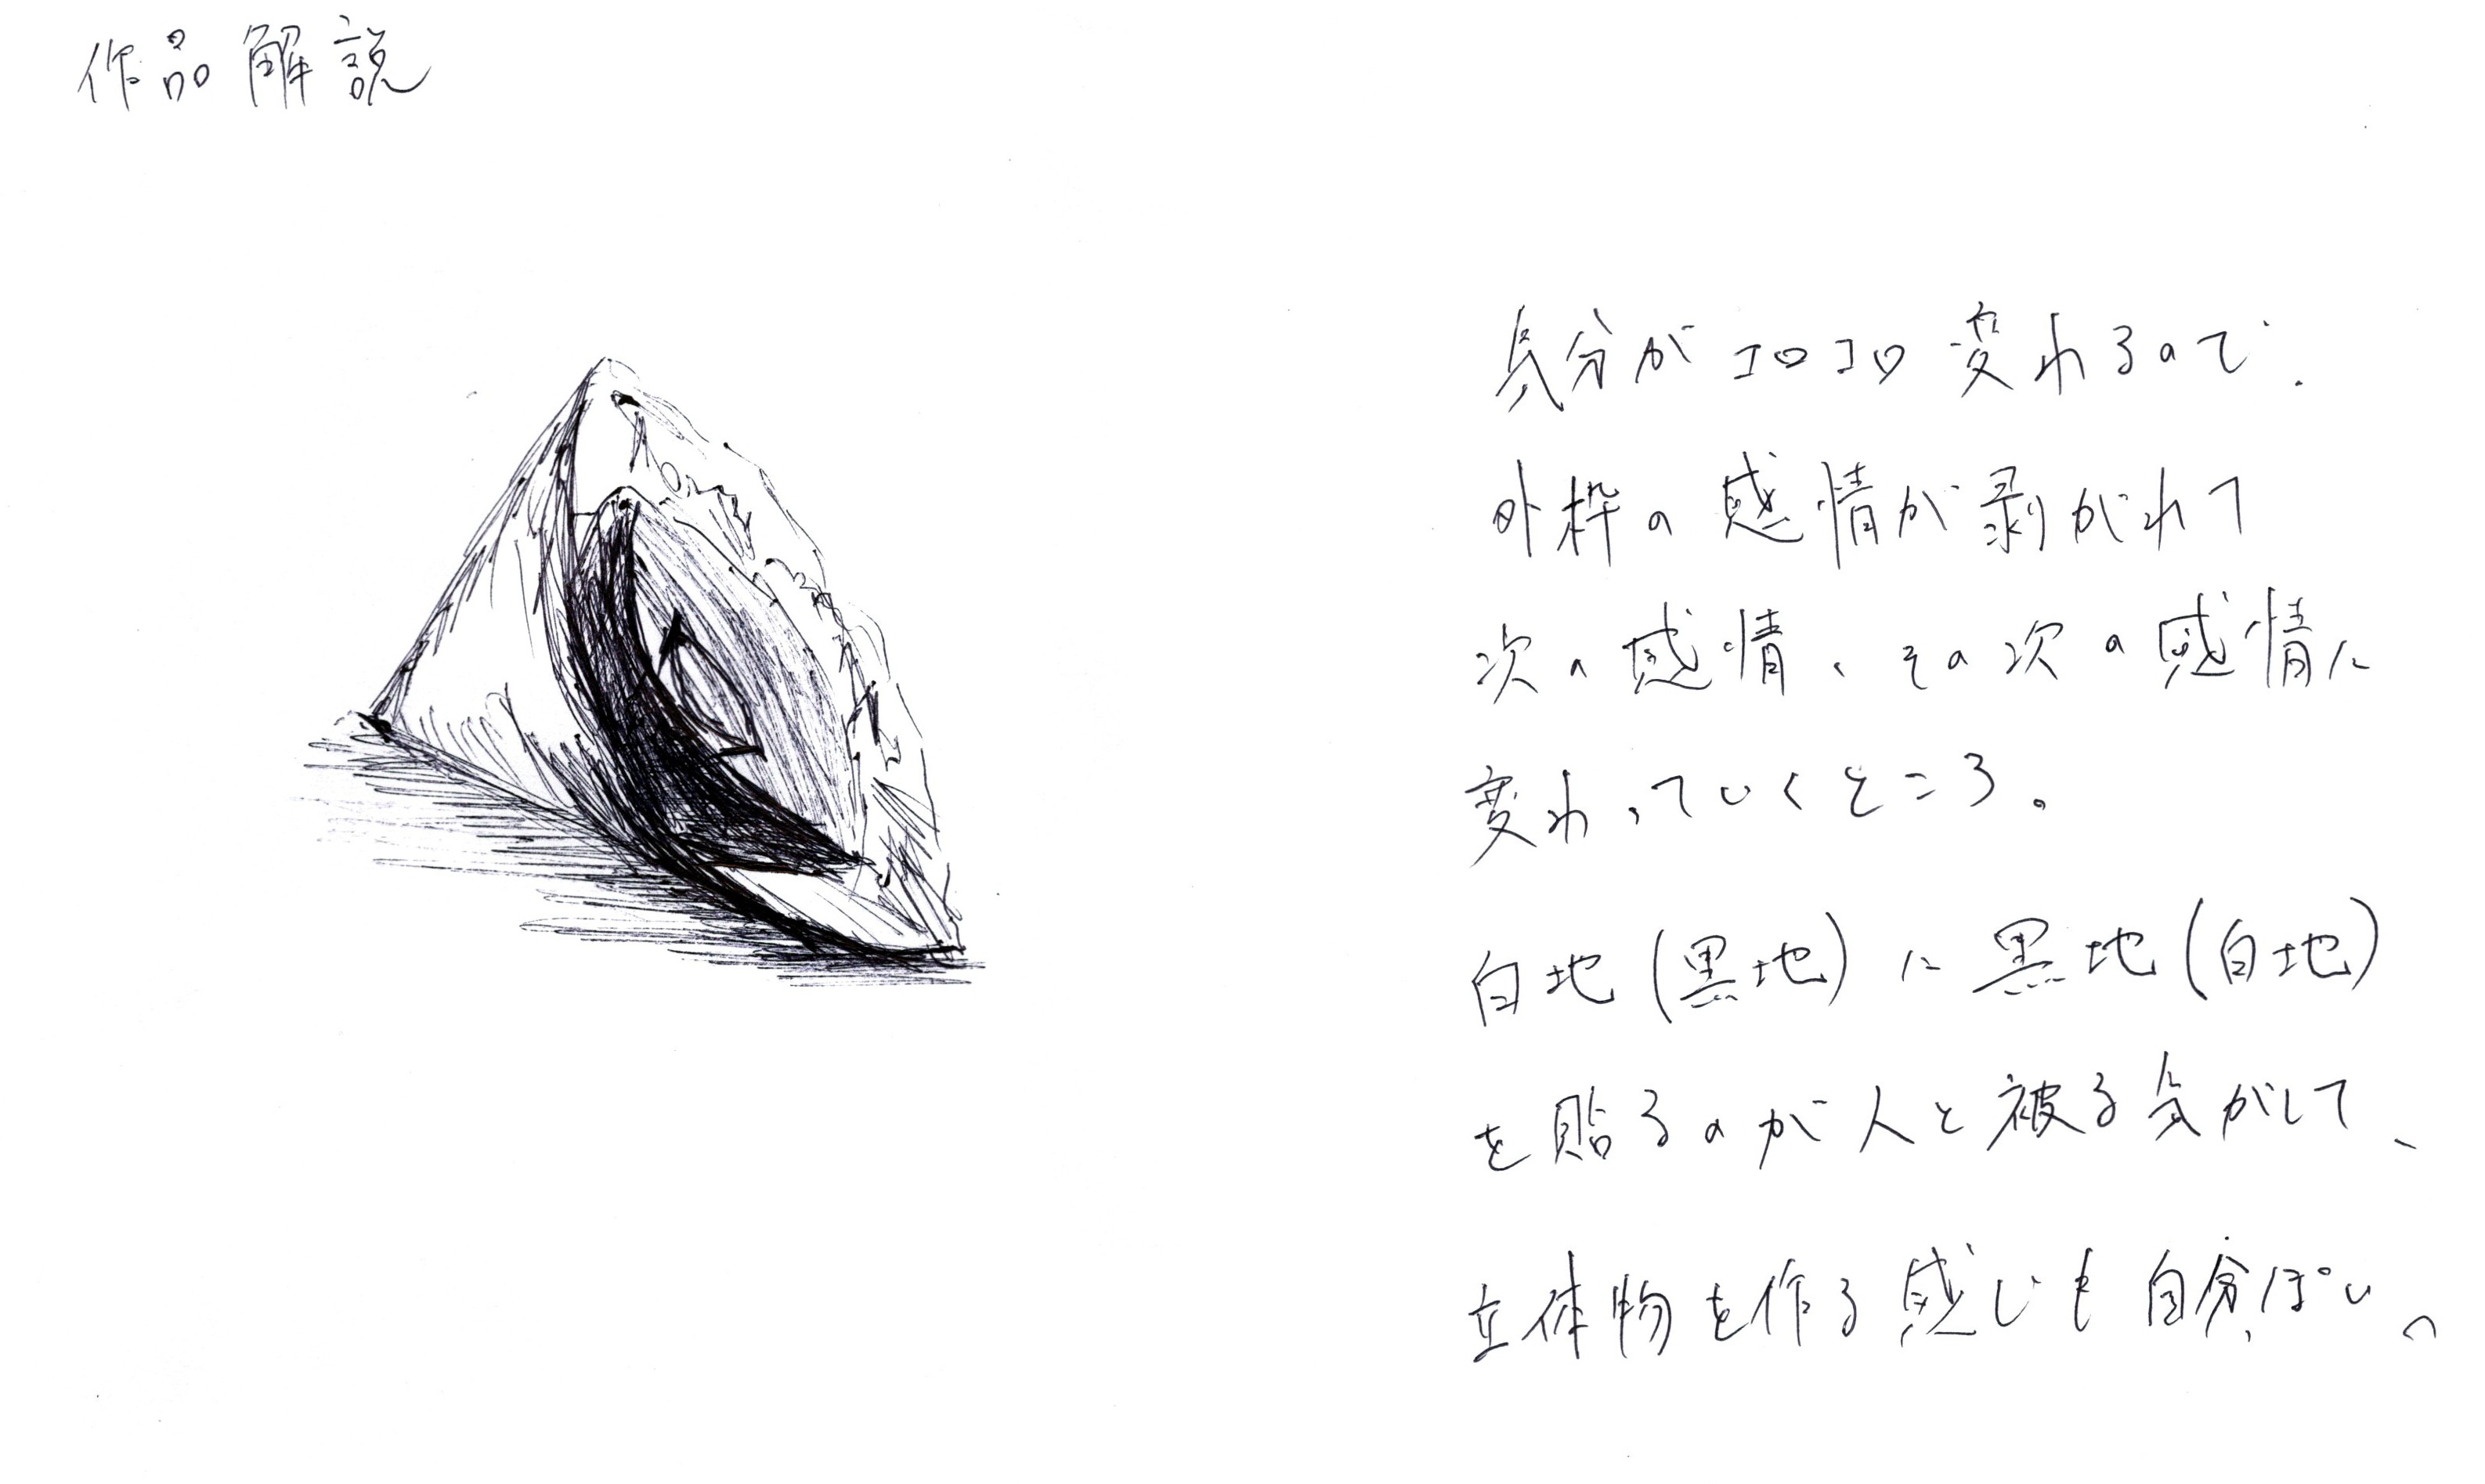 作品解説
気分がコロコロ変わるので、
外枠の感情が剥がれて
次の感情、その次の感情に
変わっていくところ。
白地(黒地)に黒地(白地)
を貼るのが人と被る気がして、
立体物を作る感じも自分ぽい。